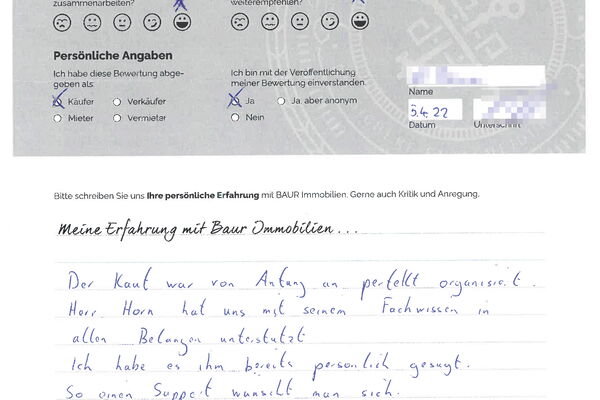 zusammenarbeiten?
weiterempfehlen?
Persönliche Angaben
Ich habe diese Bewertung abge-
geben als:
Käufer
Verkäufer
Mieter
Vermieter
Ich bin mit der Veröffentlichung
meiner Bewertung einverstanden.
Ja
Ja, aber anonym
Nein
Name
5.4.22
Datum
Unterschrift
Bitte schreiben Sie uns Ihre persönliche Erfahrung mit BAUR Immobilien. Gerne auch Kritik und Anregung.
Meine Erfahrung mit Baur Immobilien...
Der Kauf war von Anfang an perfekt organisiert.
Herr Horn hat uns mit seinem Fachwissen in
allen Belangen unterstützt
Ich habe es ihm bereits persönlich gesagt.
So einen Support wünscht man sich.